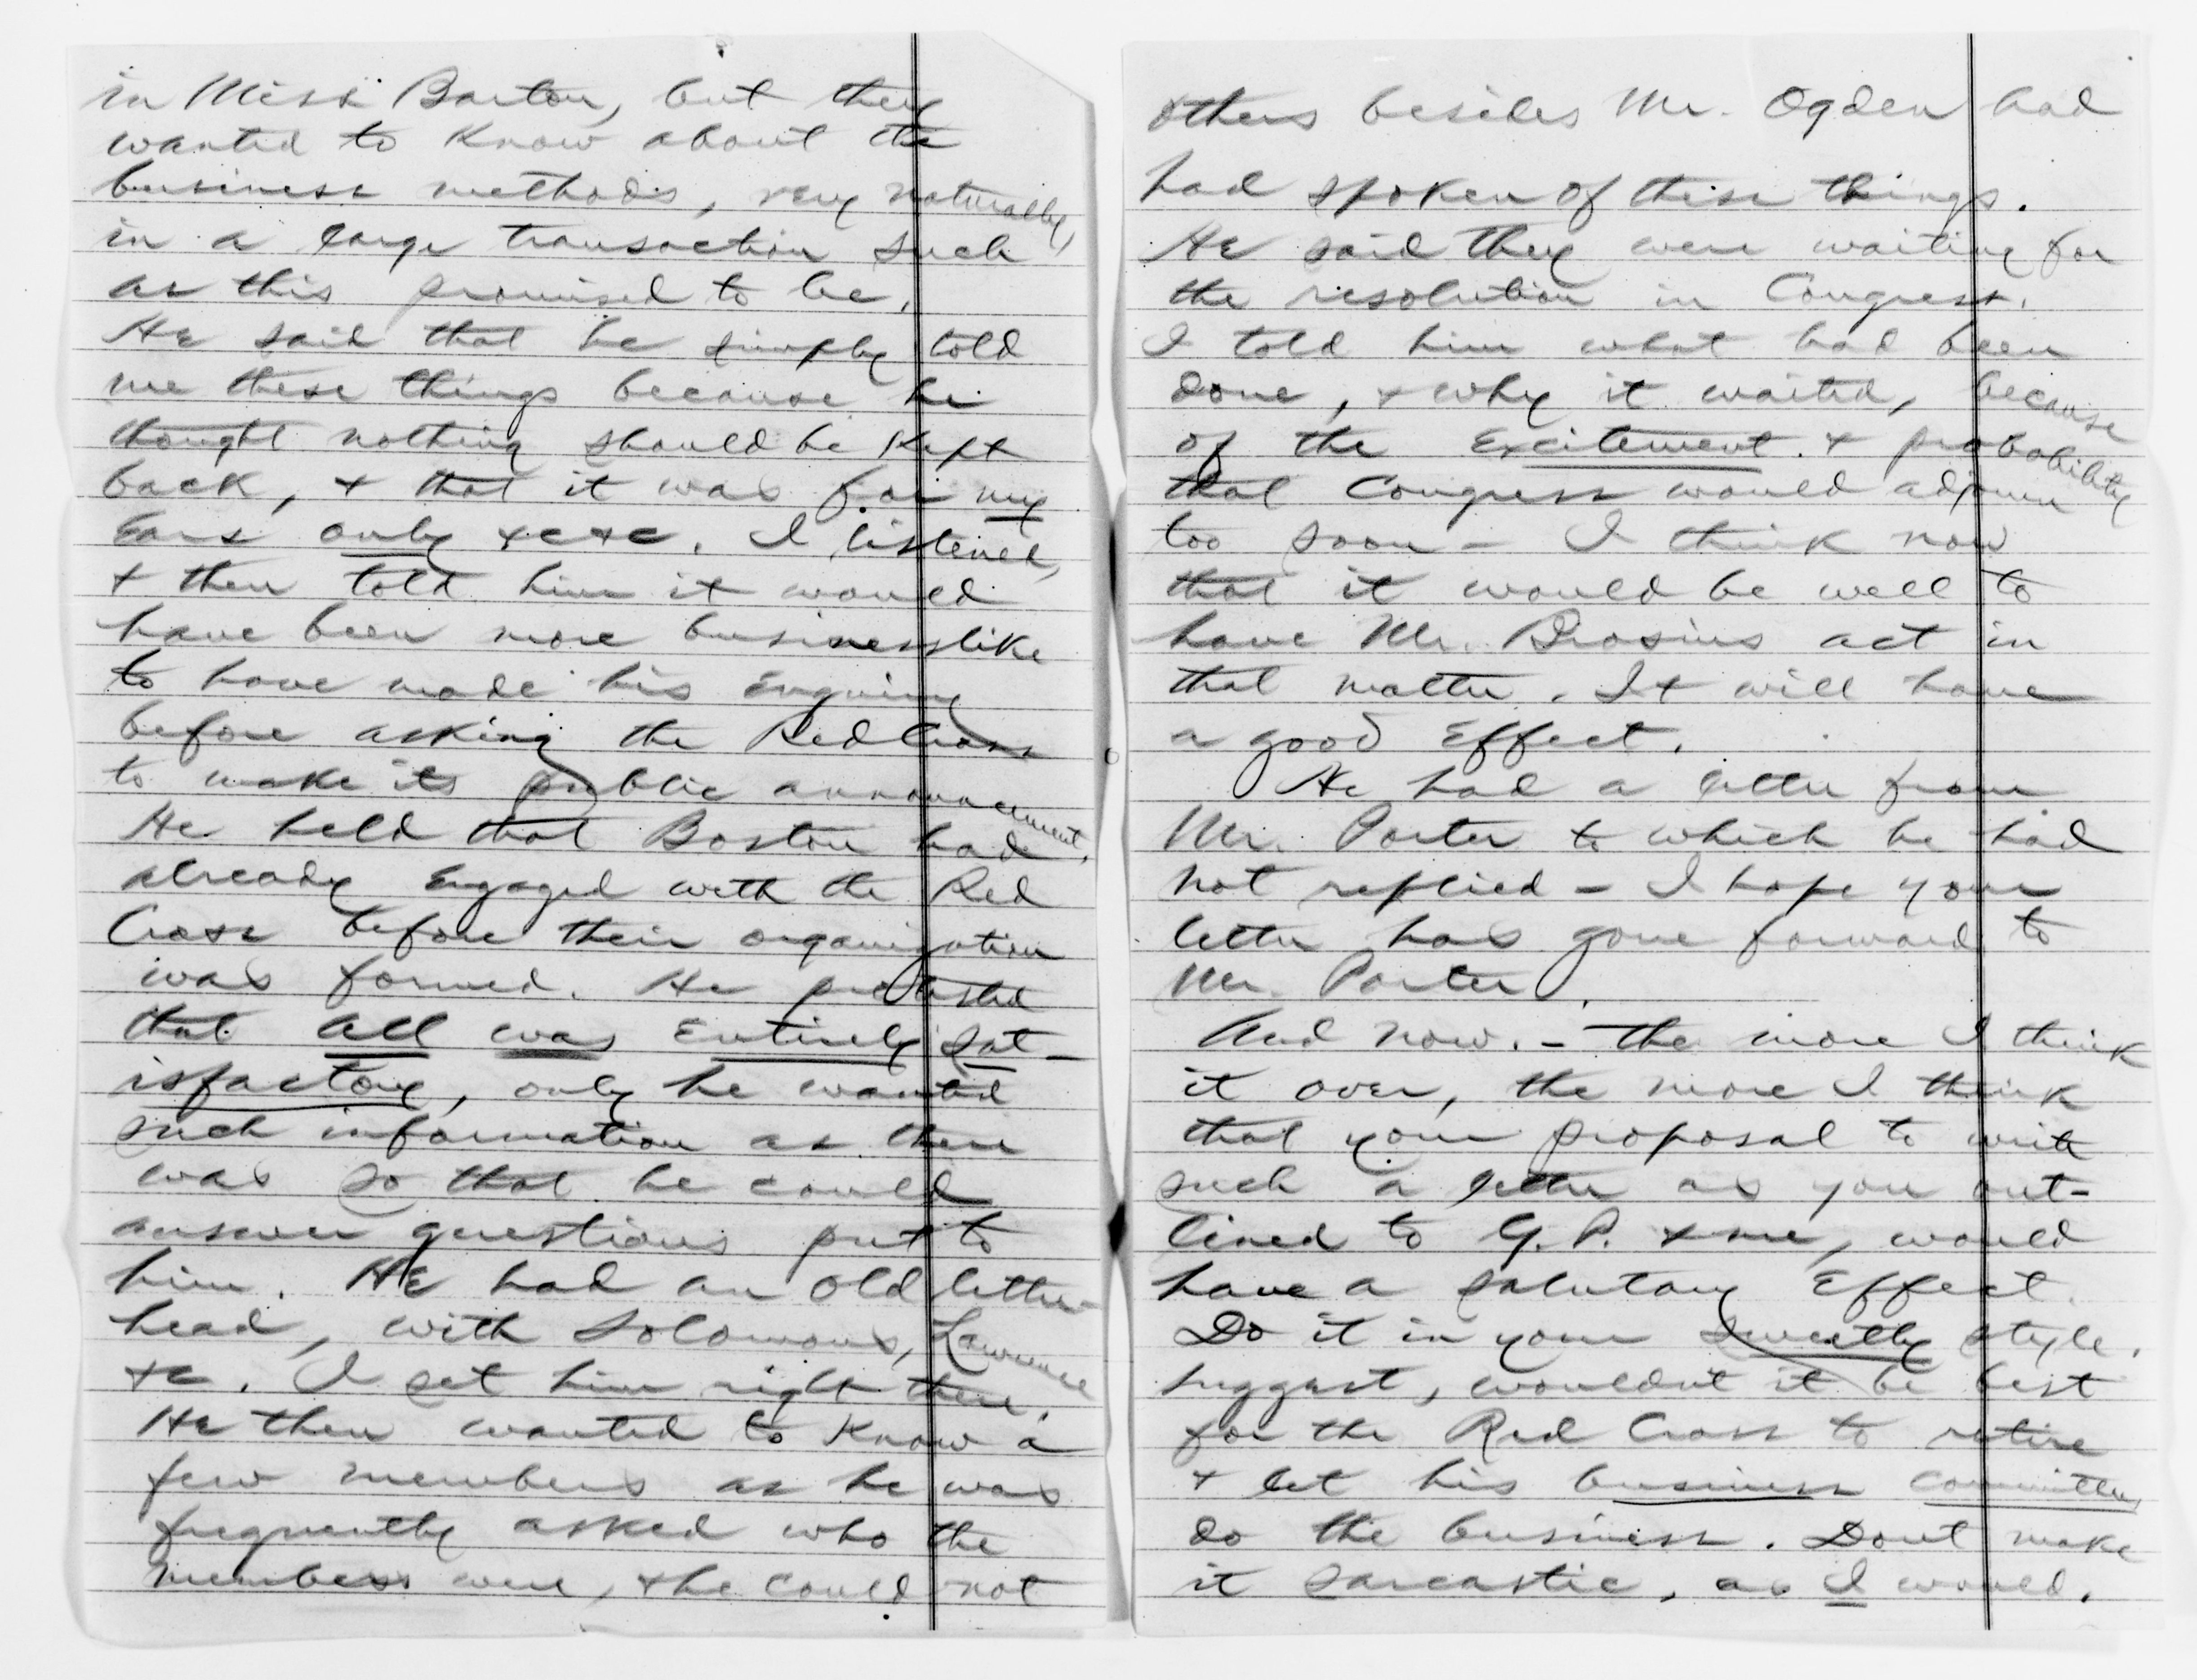 in Miss Barton, but they
wanted to know about the
business methods, very naturally,
in a large transaction such
as this promised to be.
He said that he simply told
me these things because he
thought nothing should be kept
back, & that it was for my
Ears only &c&c. I listened,
& then told him it would
have been more businesslike
to have made his Enquiry
before asking the Red Cross
to make its public announcement.
He held that Boston had
already Engaged with the Red
Cross before their organization
was formed. He protested
that all was Entirely sat-
isfactory, only he wanted
such information as there
was so that he could
answer questions put to
him. He had an old letter-
head, with Solomons, Lawrence
&c. I set him right there.
He then wanted to know a
few members as he was
frequently asked who the
members were, & he could not
others besides Mr. Ogden had
had spoken of these things.
He said they were waiting for
the resolution in Congress.
I told him what had been
done, & why it waited, because
of the Excitement. & probability
that Congress would adjourn
too soon - I think now
that it would be well to
have Mr. Brosius act in
that matter. It will have
a good Effect.
He had a letter from
Mr. Porter to which he had
not replied - I hope your
letter has gone forward to
Mr. Porter.
And now. - the more I think
it over, the more I think
that your proposal to write
such a letter as you out-
lined to G.P. & me, would
have a salutary Effect.
Do it in your sweetly style.
suggest, wouldnt it be best
for the Red Cross to retire
& let his business committees
do the business. Dont make
it sarcastic, as I would.